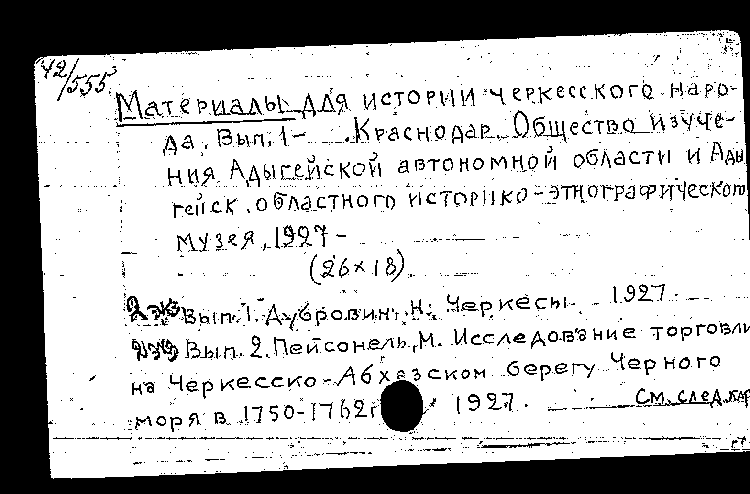 42/555
Материалы для истории черкесского наро-
да, Вып. 1 – . Краснодар, Общество изуче-
ния Адыгейской автономной области и Ады
гейск. областного историко-этнографического
музея, 1927 –
(26 × 18).
2 экз Вып. 1. Дубровин, Н. Черкесы 1927.
2 экз Вып. 2. Пейсонель, М. Исследование торговли
на Черкесско-Абхазском берегу Черного
моря в 1750-1762 г 1927.
См. след. кар